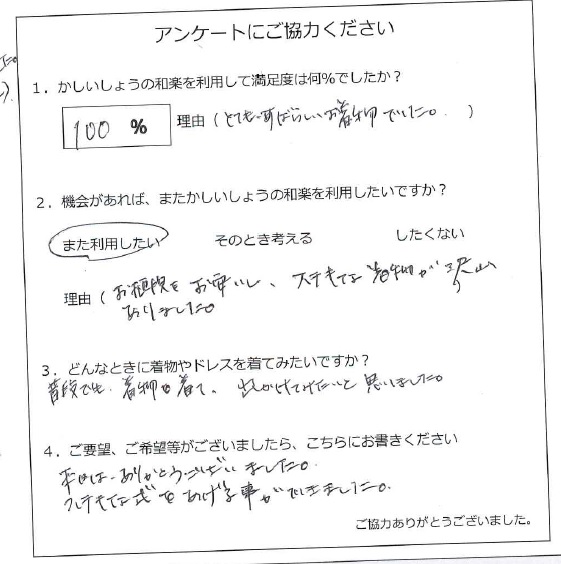 アンケートにご協力ください
1．かしいしょうの和楽を利用して満足度は何%でしたか？
100 %
理由（とてもすばらしいお着物でした。）
2．機会があれば、またかしいしょうの和楽を利用したいですか？
また利用したい そのとき考える したくない
理由（お値段もお安いし、ステキな着物が沢山
ありました。
3．どんなときに着物やドレスを着てみたいですか？
普段でも、着物を着て、出かけてみたいと思いました。
4．ご要望、ご希望等がございましたら、こちらにお書きください
本日は、ありがとうございました。
ステキな式をあげる事ができました。
ご協力ありがとうございました。